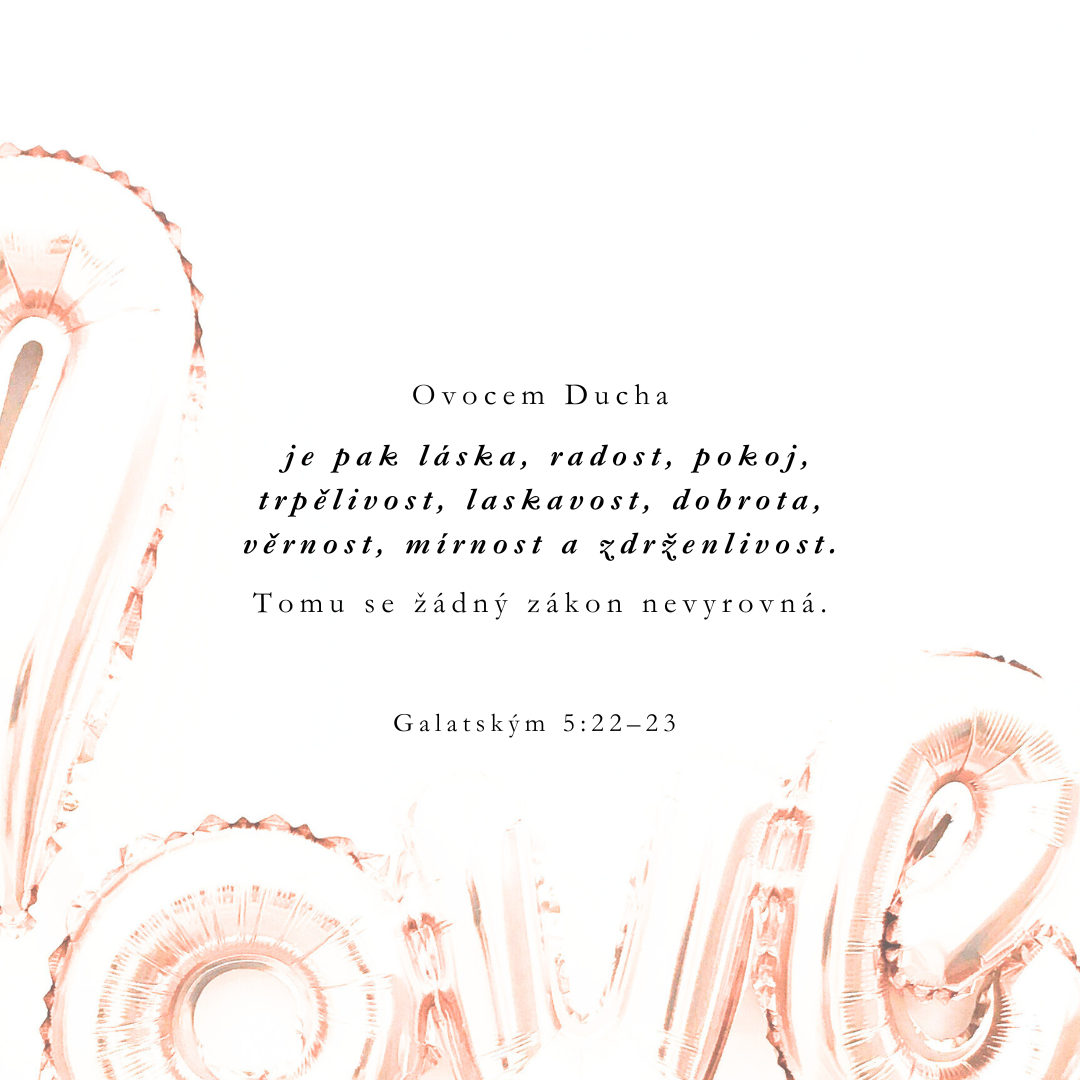 Ovocem Ducha
je pak láska, radost, pokoj,
trpělivost, laskavost, dobrota,
věrnost, mírnost a zdrženlivost.
Tomu se žádný zákon nevyrovná.
Galatským 5:22–23
love